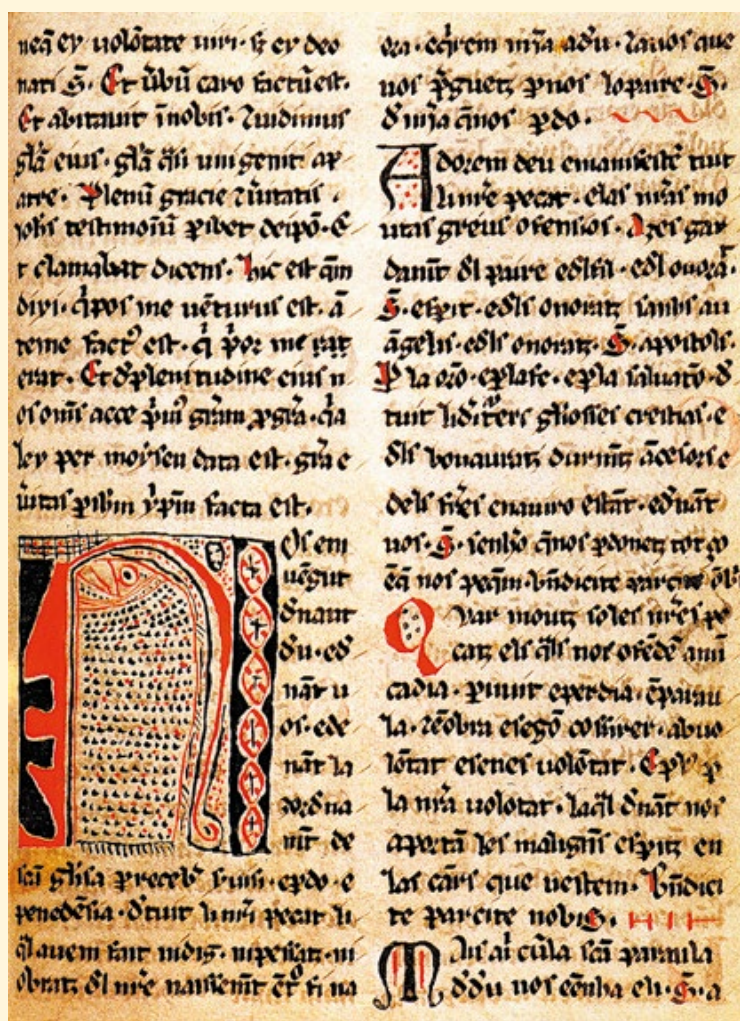 neq̃ ex uolõtate uiri· sʒ ex deo
nati S̃· Et ũbũ caro factũ est·
Et abitauit ĩnobis· ⁊uidimus
gl̃a eius· gl̃a q̃si unigenit ap
atre· Plenũ gracie ⁊ũitatis·
iohs testimoniũ ꝑibet deipo̴· E
t clamabat dicens· hic est q̃m
dixi· q̃pos me uẽturus est· ã
teme fact⁹ est· q̃ p̃or me
erat· Et d̃plenitudine eius n
os oms̃ acce p̃m⁹ gr̃am ꝓgr̃a· q̃a
lex per moysen data est· gr̃a e
ũitas ꝑ ih̃m xp̃m facta est·
Os em
uẽgut
d̃nant
d̃u· ed̃
nãt u
os· ede
nãt la
zord̃na
mt̃ de
sc̃a gl̃isa ꝑ recebr̃ ꝑdo· e
penedẽsia· d̃tuit li nr̃i pecat li
q̃l auem fait ni dig· nipessatz· ni
obratz d̃l nr̃e naissemt̃ fi na
ora· eq̃rem mr̃a ad̃u· ⁊auos que
uos p̃guetz ꝑnos lo paire· S̃·
d̃ mr̃a q̃nos ꝑdo·
Adorem deu emanifestẽ tuit
li nr̃e pecat· elas nr̃as mo
utas greus ofensios· Azes gar
damt̃ d̃l paire ed̃lfil· ed̃l onora·
S̃· esꝑit· ed̃ls onoratz sainhs au
ãgelis· ed̃ls onoratz· S̃· apostols·
P la orõ· eꝑlafe· eꝑla saluatõ· d̃
tuit li dr̃iters gl̃ioses crestias· e
d̃ls bonauratz durmẽtz ãcesors e
dels fr̃es enauiro estãt· ed̃uãt
uos· S̃· senhor q̃nos ꝑdonetz tot zo
ẽq̃ nos pecam̃· bñdicite parcite
Qvar moutz so les nr̃es pe
catz els q̃ls nos ofẽdẽ
cadia· ꝑnuit eperdia· ẽparau
la· ⁊ẽobra esegõ cossirer· abuo
lõtat esenes uolõtat· E
la nr̃a uolotat· laq̃l d̃nãt nos
aportã les malignes esꝑitz en
las carñs que uestem· bñdici
te parcite nobis·
Mais ai cũla sc̃a paraula
d̃d̃u nos eẽnha eli· S̃· a